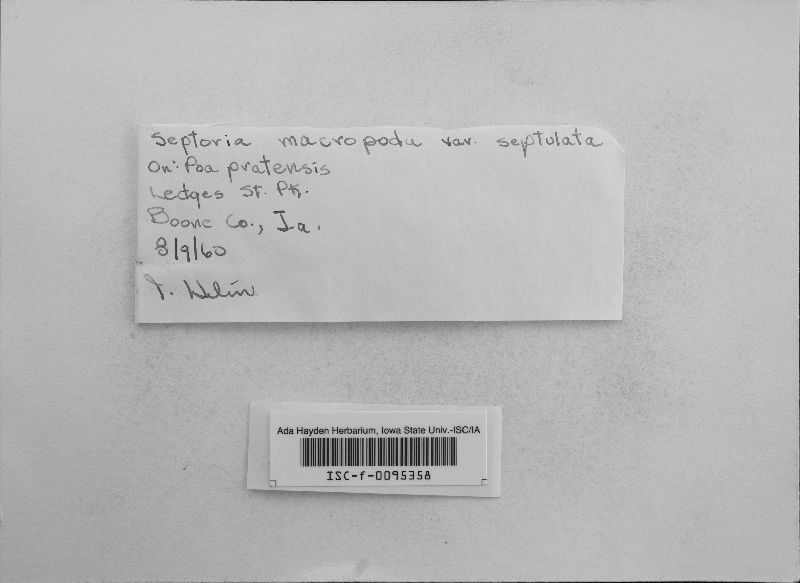 Septoria macropoda var. septulata
On: Poa pratensis
Ledges St. Pk.
Boone Co., Ia.
8/9/60
Ada Hayden Herbarium, Iowa State Univ.-ISC/IA
ISC-f-0095358